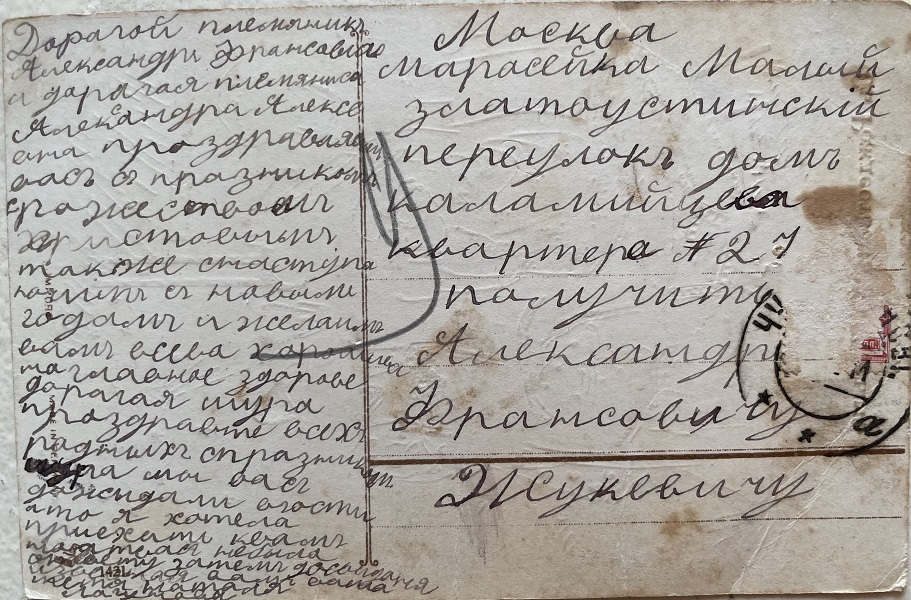 Дорагой племяникъ
Александръ Франсовiчь
и дарагая племяница
Александра Алексе
вна проздравляем
васъ съ празникомъ
ражествомъ
христовымъ
также снаступа
ющимъ с новымъ
годамъ и желаимъ
вамъ всева харошева
таглавное здорове
дарагая шура
проздравте всехъ
родныхъ спразникам
шура мы васъ
дажидали вгости
что я хотела
приехати квамъ
Москва
Марасейка Малый
златоустинскiй
переулокъ домъ
каламийцева
квартера № 27
палучить
Александру
Франсовичу
Жукевичу
1421